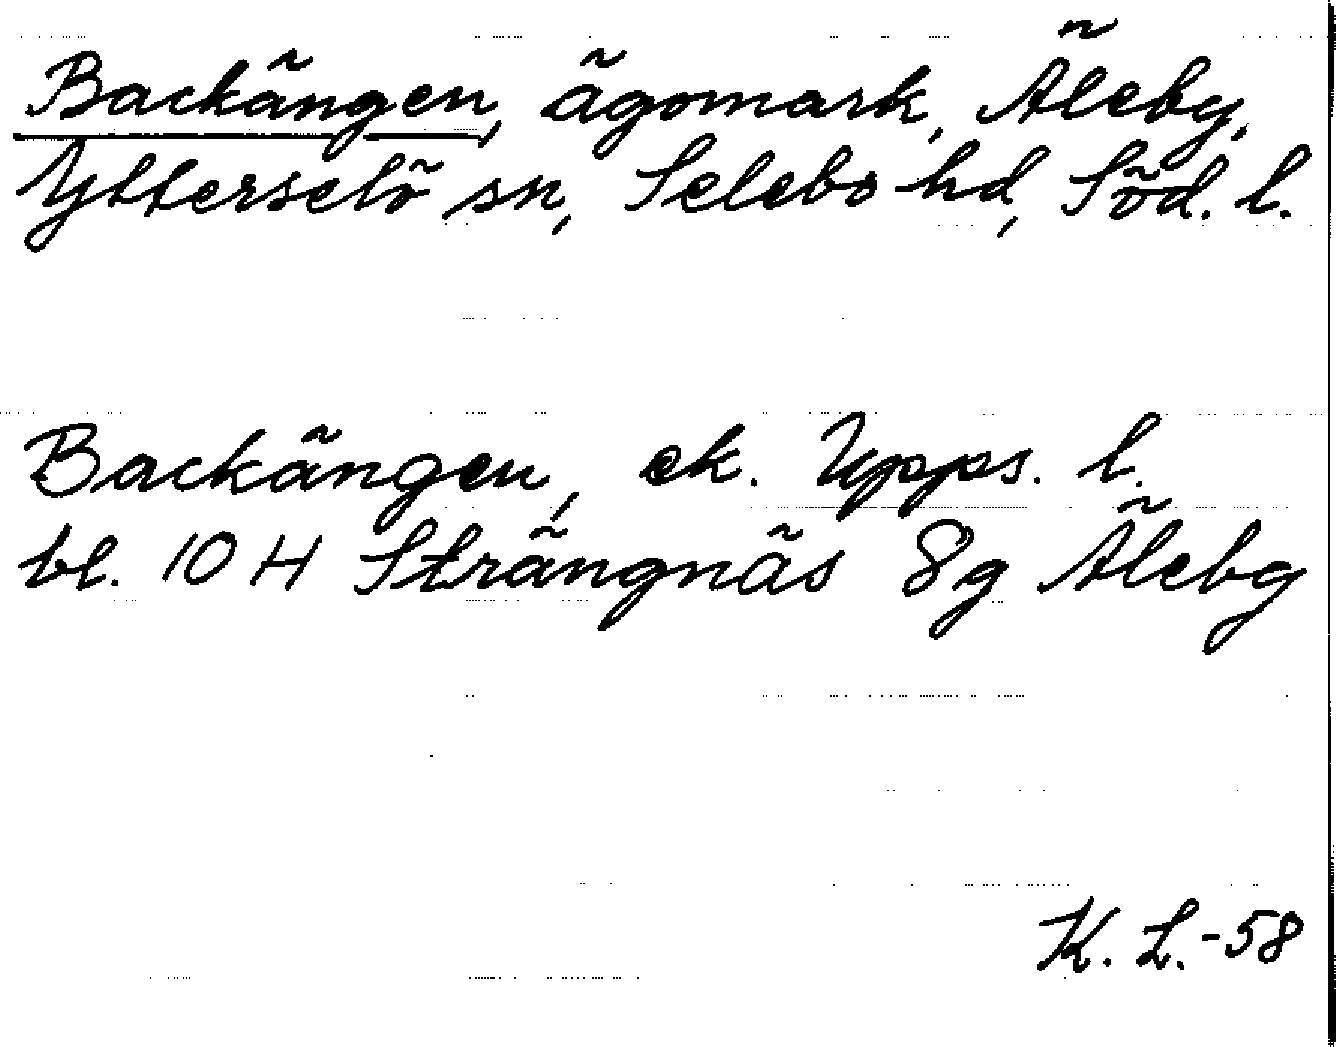 Backängen, ägomark, Äleby,
Ytterselö sn, Selebo hd, Söd. l.
Backängen, ek. Upps. l.
bl. 10 H Strängnäs 8g Äleby
K. L.-58